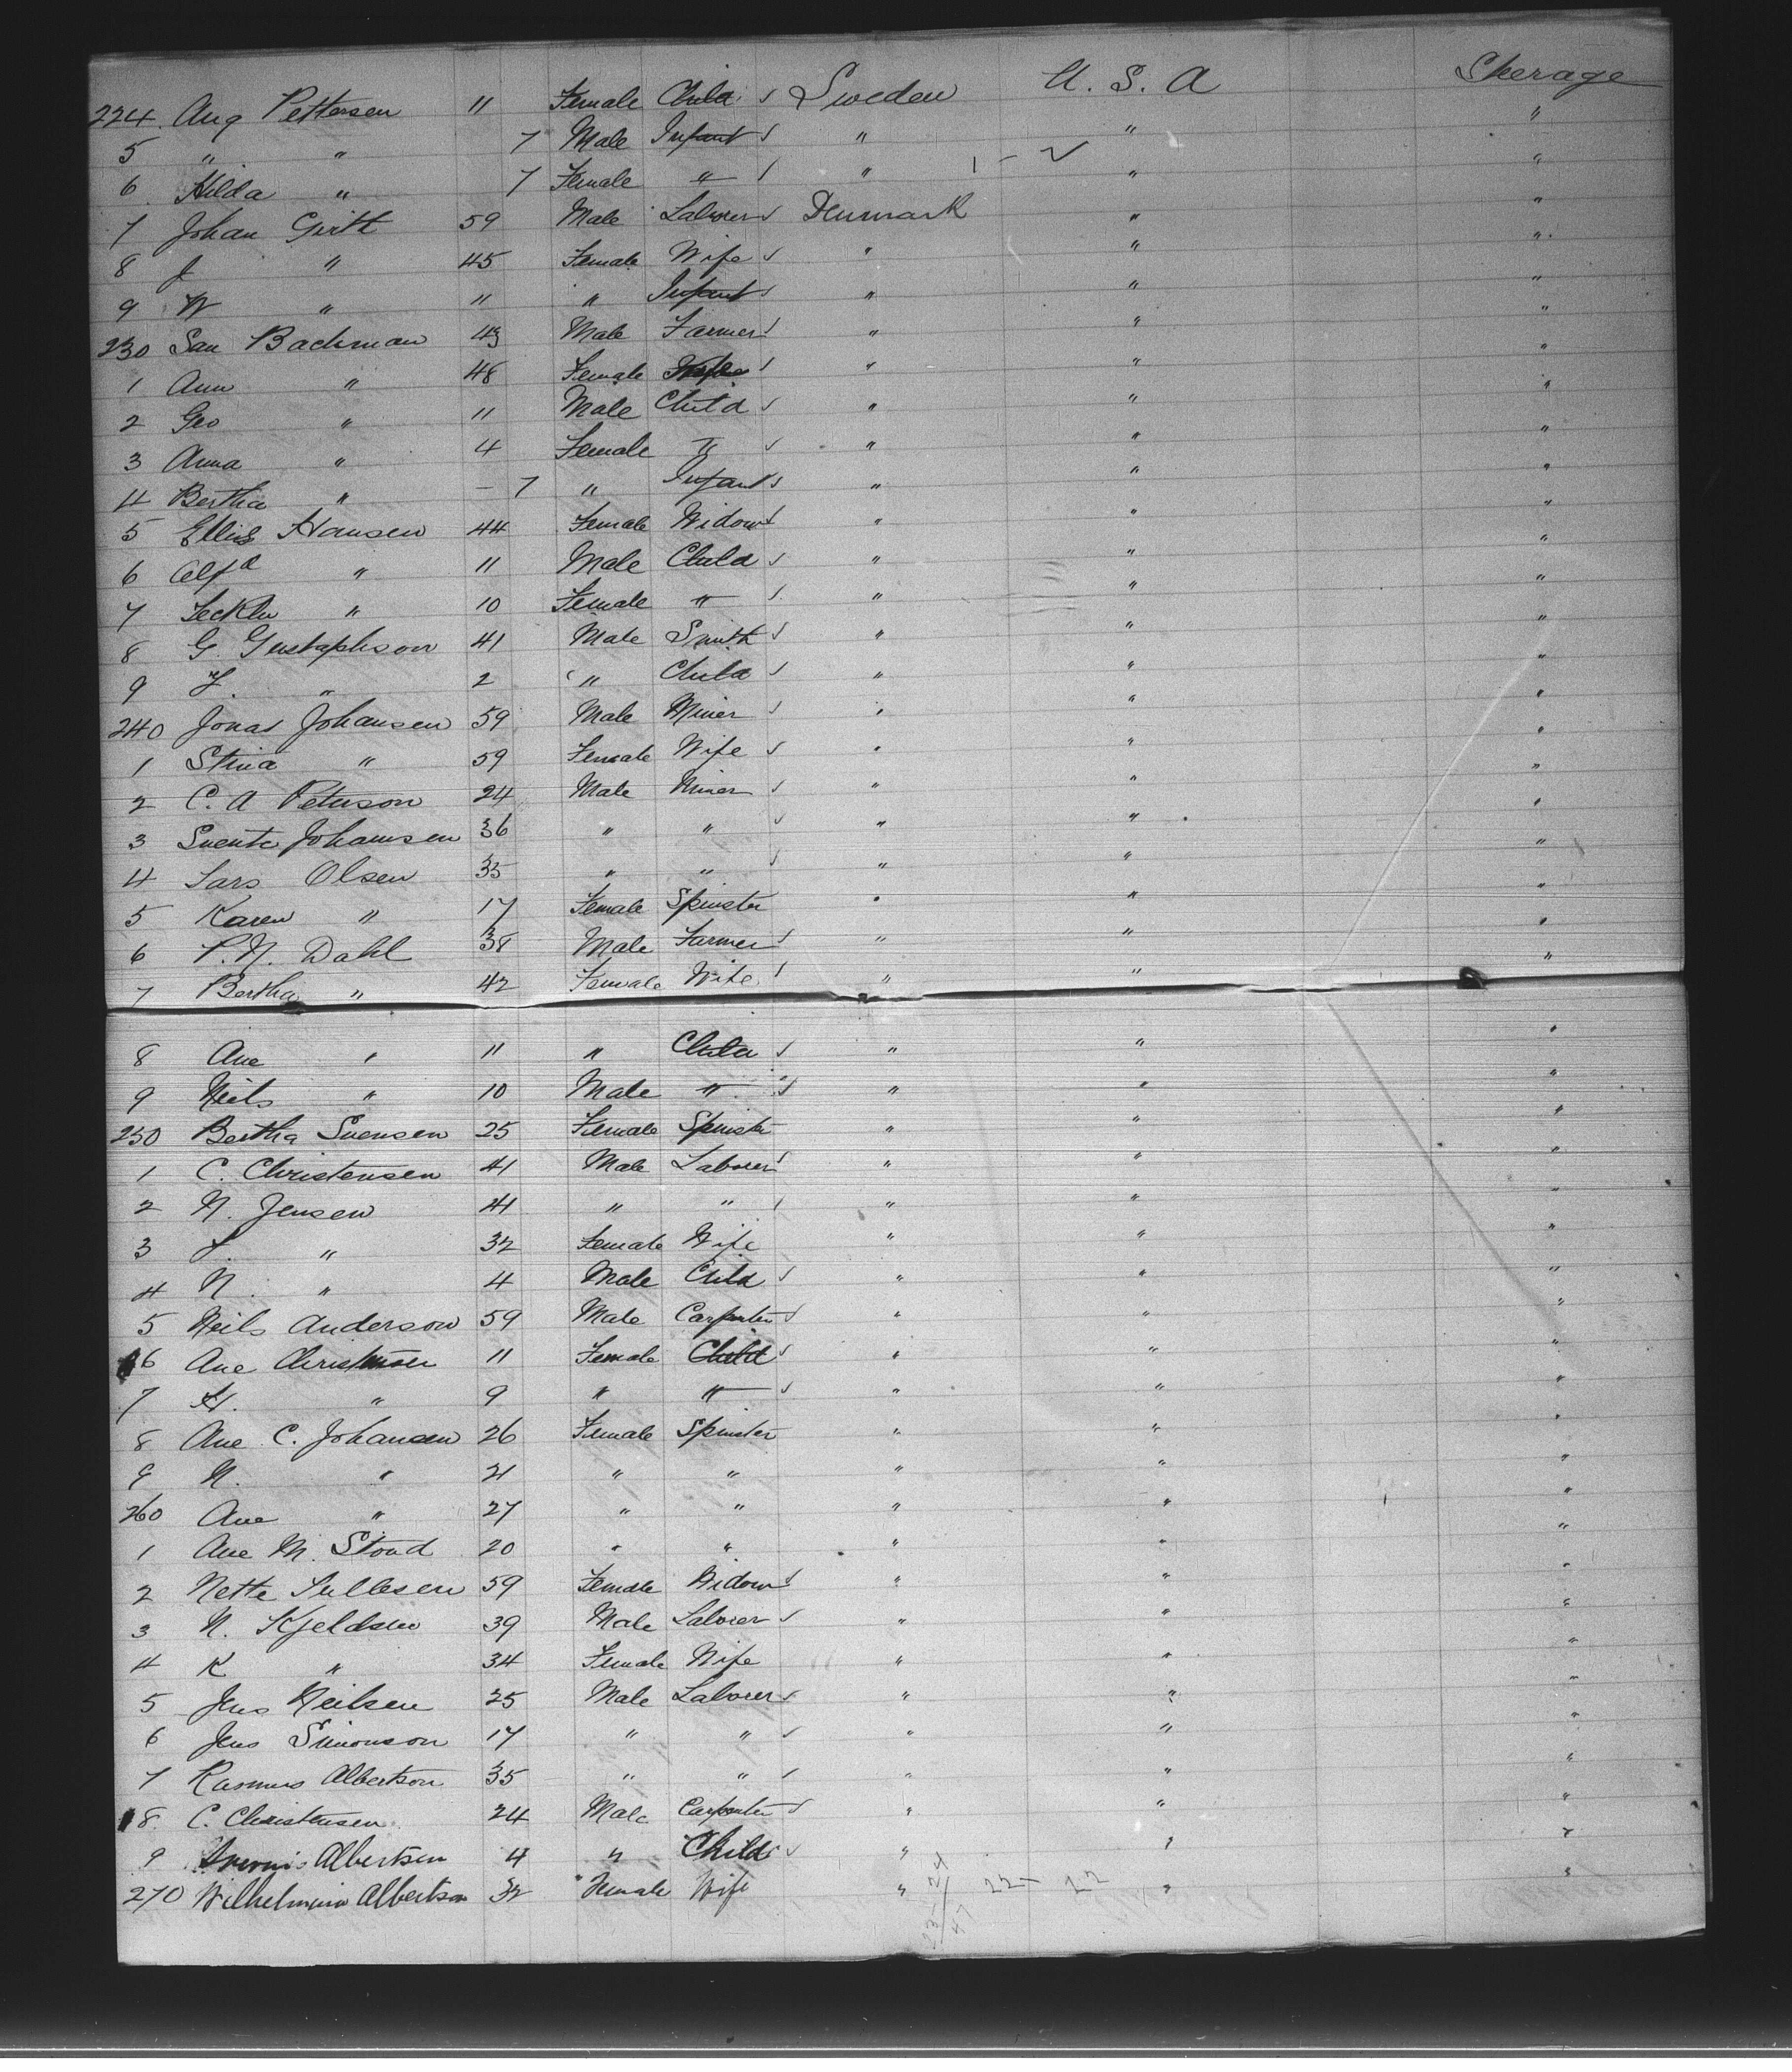 224 Aug Pettersen 11 Female Child Sweden U. S. A Steerage
5 " " 7 Male Infant " " "
6 Hilda " 7 Female " " 1 - " "
7 Johan Girth 59 Male Laborer Denmark " "
8 J " 45 Female Wife " " "
9 W " 11 " Infant " " "
230 San Bachman 43 Male Farmer " " "
1 Ann " 48 Female Wife " " "
2 Geo " 11 Male Child " " "
3 Anna " 4 Female " " " "
4 Bertha " - 7 " Infant " " "
5 Ellis Hansen 44 Female Widow " " "
6 Alfd " 11 Male Child " " "
7 " 10 Female " " " "
8 G. Gustaphson 41 Male Smith " " "
9 " 2 " Child " " "
240 Jonas Johansen 59 Male Miner " " "
1 Stina " 59 Female Wife " " "
2 C. A Peterson 24 Male Miner " " "
3 Svente Johansen 36 " " " " "
4 Lars Olsen 35 " " " " "
5 Karen " 17 Female Spinster " " "
6 P. N. Dahl 38 Male Farmer " " "
7 Bertha " 42 Female Wife " " "
8 Ane " 11 " Child " " "
9 Neils " 10 Male " " " "
250 Bertha Svensen 25 Female Spinster " " "
1 C. Christensen 41 Male Laborer " " "
2 N. Jensen 41 " " " " "
3 " 32 Female Wife " " "
4 N. " 4 Male Child " " "
5 Neils Anderson 59 Male Carpenter " " "
6 Ane 11 Female Child " " "
7 H. " 9 " " " " "
8 Ane C. Johansen 26 Female Spinster " " "
9 N. " 21 " " " " "
260 Ane " 27 " " " " "
1 Ane M. Stoud 20 " " " " "
2 Nette 59 Female Widow " " "
3 N. Kjeldsen 39 Male Laborer " " "
4 K " 34 Female Wife " " "
5 Jens Neilsen 25 Male Laborer " " "
6 Jens Simonson 17 " " " " "
7 Rasmus Albertson 35 " " " " "
8 C. Christensen 24 Male Carpenter " " "
9 Albertsen 4 " Child " " "
270 Wilhelmina Albertson 32 Female Wife " 22 - 22 " "